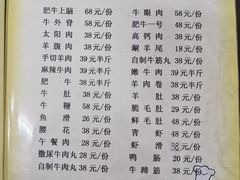 肥牛上脑 68元/份
牛外脊 58元/份
太阳肉 38元/份
羊腹肉 38元/份
手切羊肉 39元半斤
麻辣牛肉 39元半斤
肥牛 38元/份
牛肚 38元/份
牛鞭 58元/份
鱼滑 26元/份
腰花 38元/份
午餐肉 28元/份
撒尿牛肉丸 28元/份
自制牛肉丸 38元/份
牛眼肉 58元/份
肥牛一号 48元/份
高钙肉 38元/份
涮羊尾 18元/份
自制牛筋丸 38元/份
嫩牛肉 39元半斤
羊肉卷 38元/份
羊肚 38元/份
脆毛肚 29元/份
鲜毛肚 48元/份
青虾 38元/份
虾滑 38元/份
鸭肠 20元/份
牛蹄筋 38元/份